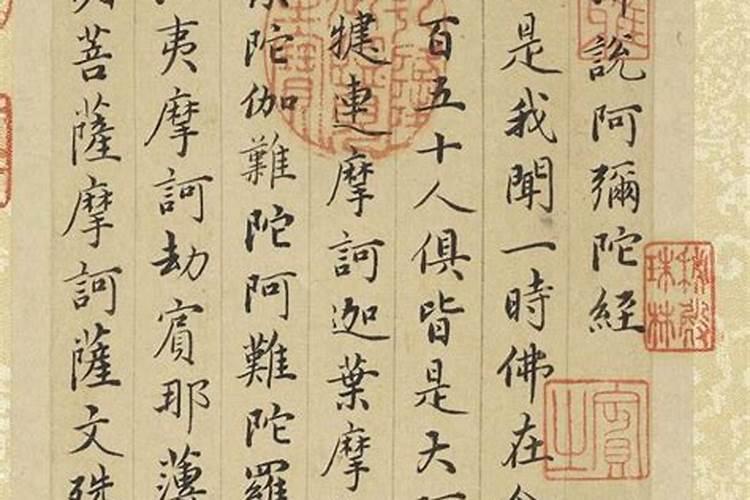 說阿彌陀經
是我聞一時佛在
百五十人俱皆是大
犍連摩訶迦葉摩
陀伽難陀阿難陀羅
夷摩訶劫賓那薄
菩薩摩訶薩文殊